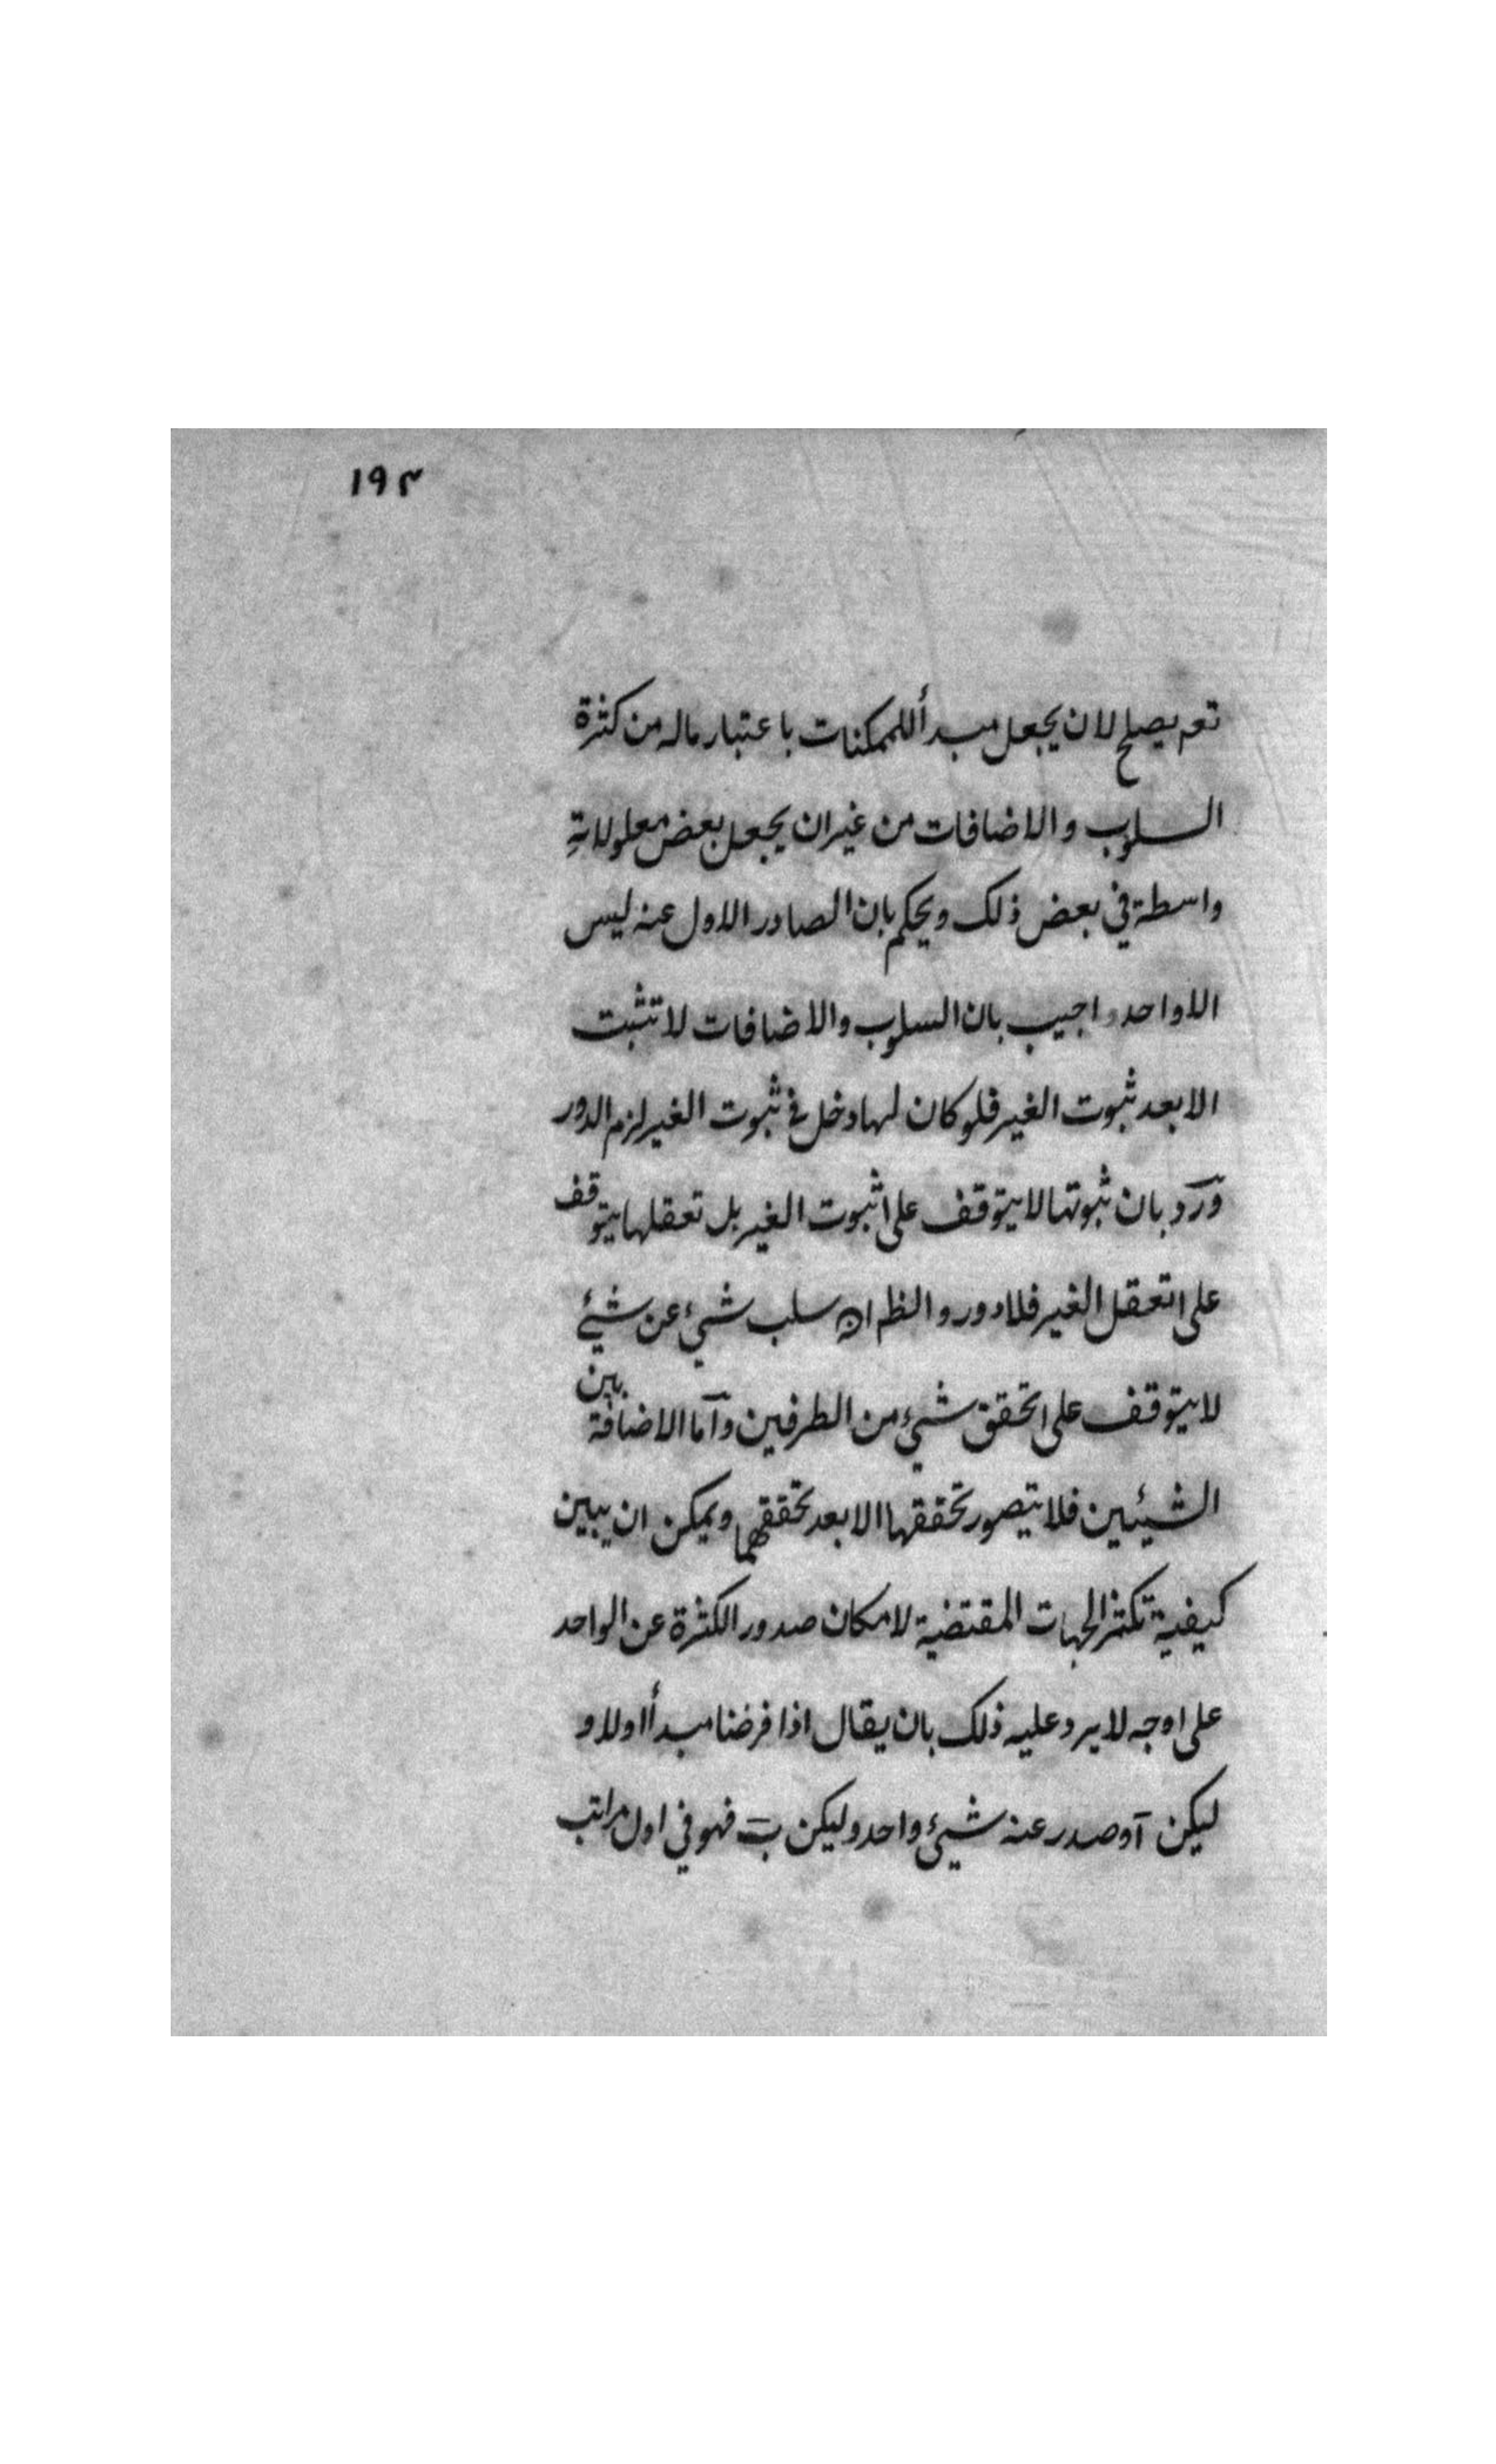 ١٩٢
تعم يصلح لان يجعل مبدأ للممكنات باعتبار ماله من كثرة
السلوب والاضافات من غير ان يجعل بعض معلولاتةِ
واسطة في بعض ذلك ويحكم بان الصادر الاول عنه ليس
الا واحد و اجيب بان السلوب والاضافات لا تثبت
الا بعد ثبوت الغير فلو كان لها دخل في ثبوت الغير لزم الدور
ورد بان ثبوتها لا يتوقف على ثبوت الغير بل تعقلها يتوقف
على تعقل الغير فلا دور و الظ ان سلب شيء عن شيئ
لا يتوقف على تحقق شيء من الطرفين واما الاضافة بين
الشيئين فلا يتصور تحققها الا بعد تحققهما ويمكن ان يبين
كيفية تكثر الجهات المقتضية لامكان صدور الكثرة عن الواحد
على وجه لا يرد عليه ذلك بان يقال اذا فرضنا مبدأ اولا و
ليكن آ وصدر عنه شيئ واحد وليكن ب فهو في اول مراتب